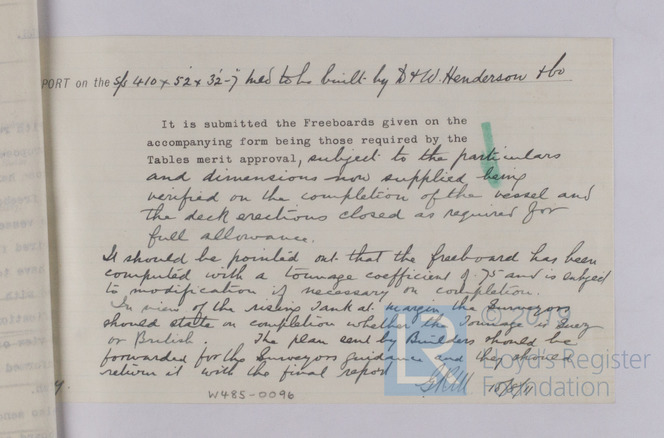 PORT on the s/s 410 x 52 x 32-7 mld to be built by D & W. Henderson & Co
It is submitted the Freeboards given on the
accompanying form being those required by the
Tables merit approval, subject to the particulars
and dimensions now supplied being
verified on the completion of the vessel and
the deck erections closed as required for
full allowance.
It should be pointed out that the freeboard has been
computed with a tonnage coefficient of .75 and is subject
to modification if necessary on completion.
In view of the rising Tank at margin the Surveyors
should state on completion whether the Tonnage is Suez
or British. The plan sent by Builders should be
forwarded for the Surveyors guidance and they should
return it with the final report
W485-0096
© 2019
LR
Lloyd's Register
Foundation